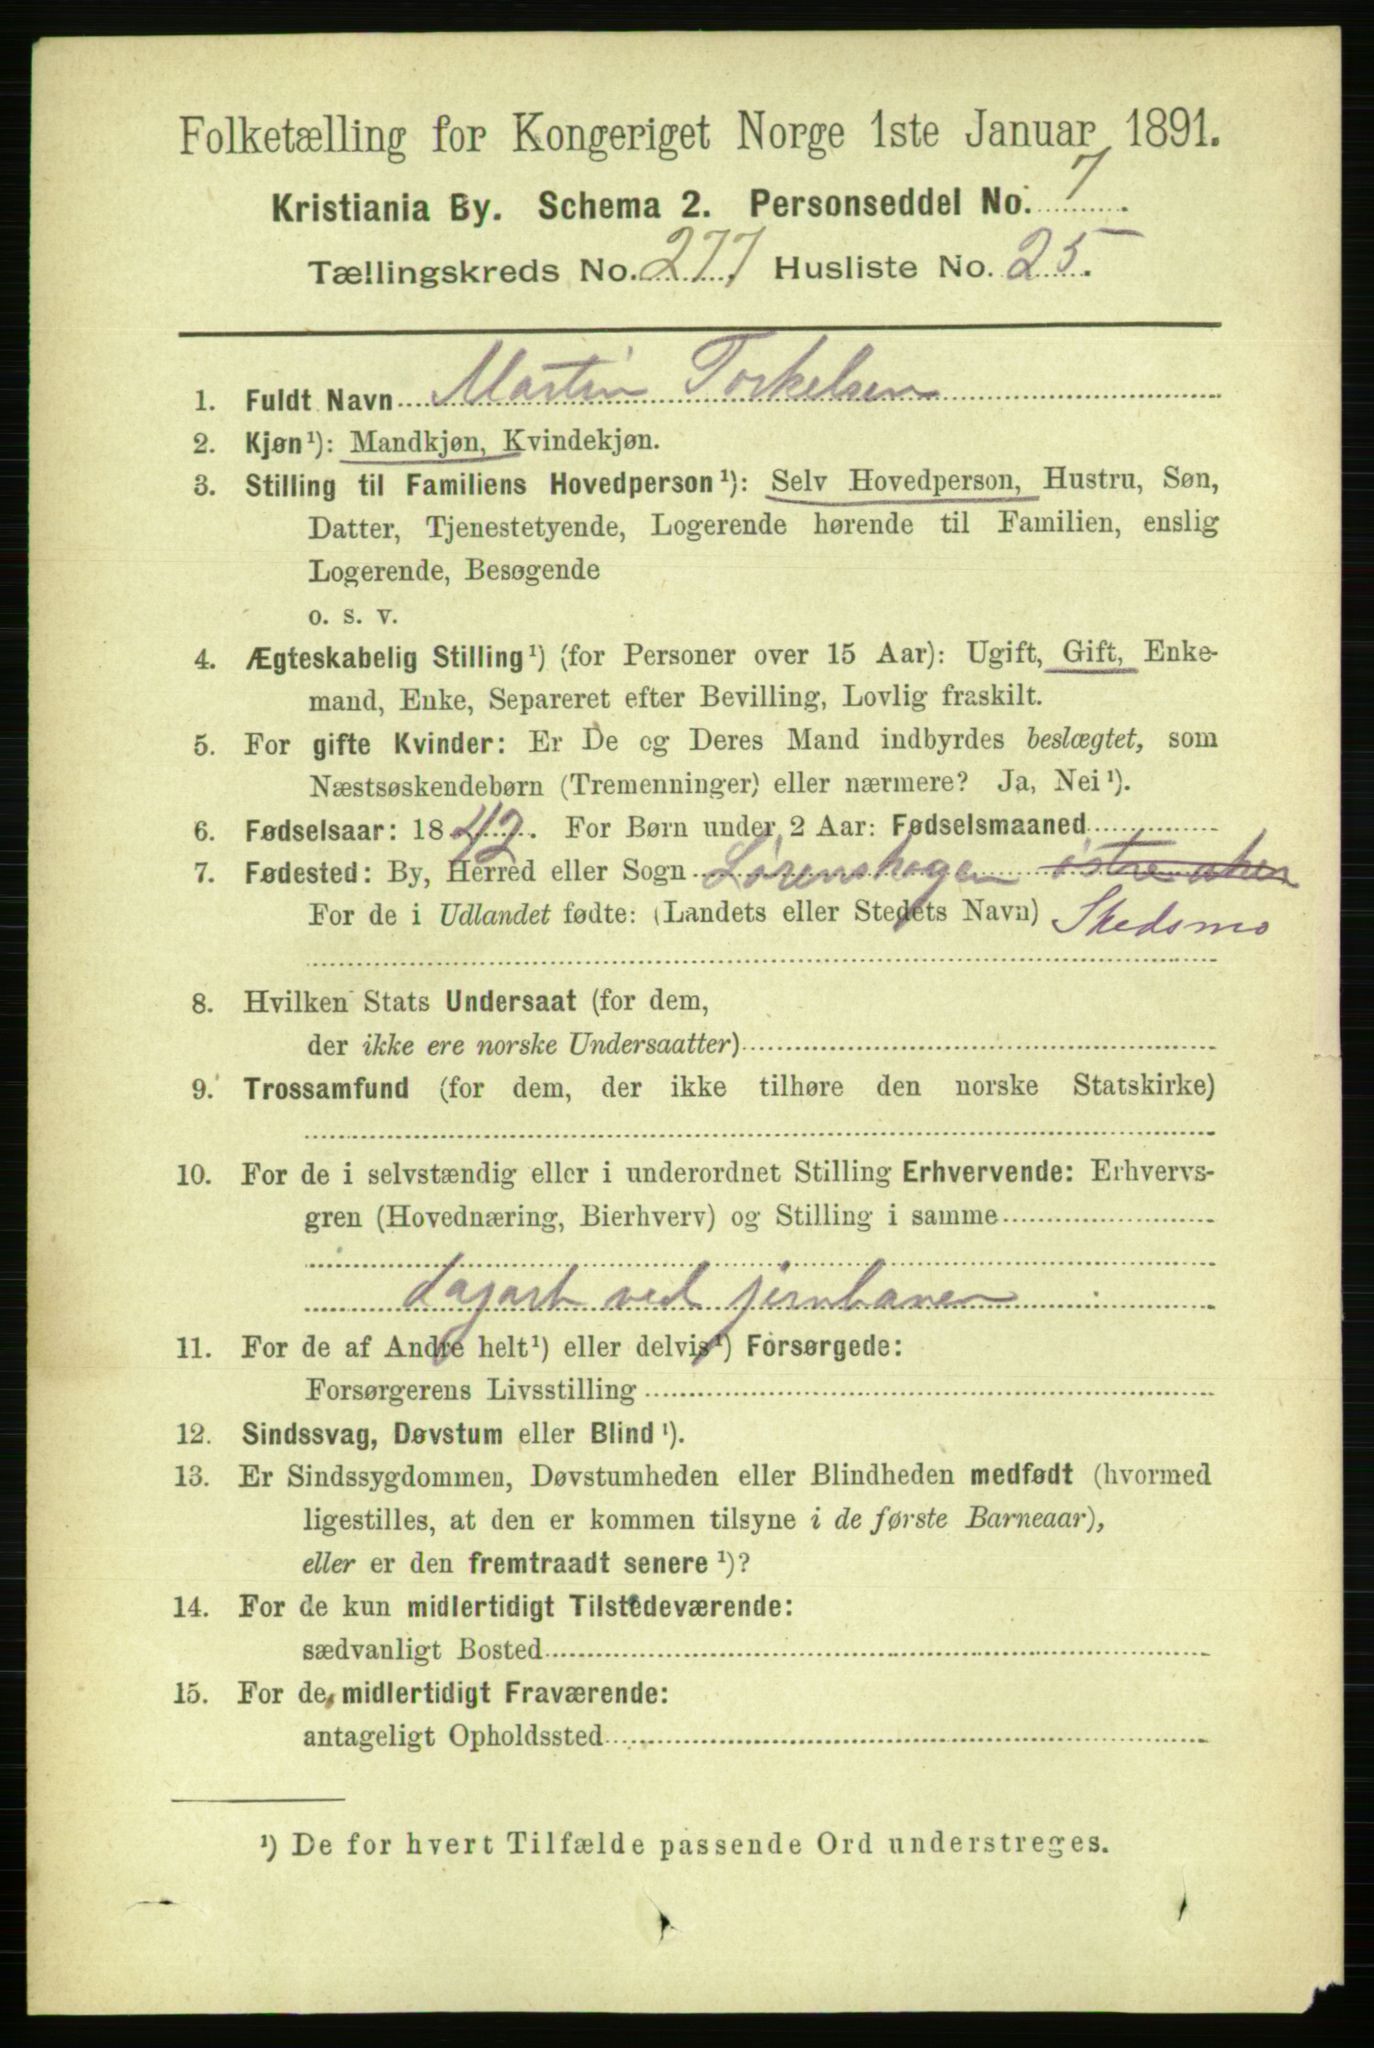 Folketælling for Kongeriget Norge 1ste Januar 1891.
Kristiania By. Schema 2. Personseddel No. 7.
Tællingskreds No. 277 Husliste No. 25.
1. Fuldt Navn Martin Torkelsen
2. Kjøn¹): Mandkjøn, Kvindekjøn.
3. Stilling til Familiens Hovedperson¹): Selv Hovedperson, Hustru, Søn,
Datter, Tjenestetyende, Logerende hørende til Familien, enslig
Logerende, Besøgende
o. s. v.
4. Ægteskabelig Stilling¹) (for Personer over 15 Aar): Ugift, Gift, Enke-
mand, Enke, Separeret efter Bevilling, Lovlig fraskilt.
5. For gifte Kvinder: Er De og Deres Mand indbyrdes beslægtet, som
Næstsøskendebørn (Tremenninger) eller nærmere? Ja, Nei¹).
6. Fødselsaar: 1842. For Børn under 2 Aar: Fødselsmaaned
7. Fødested: By, Herred eller Sogn Lørenskogen østre aker
For de i Udlandet fødte: (Landets eller Stedets Navn) Skedsmo
8. Hvilken Stats Undersaat (for dem,
der ikke ere norske Undersaatter)
9. Trossamfund (for dem, der ikke tilhøre den norske Statskirke)
10. For de i selvstændig eller i underordnet Stilling Erhvervende: Erhvervs-
gren (Hovednæring, Bierhverv) og Stilling i samme
dagarb ved jernbanen
11. For de af Andre helt¹) eller delvis¹) Forsørgede:
Forsørgerens Livsstilling
12. Sindssvag, Døvstum eller Blind¹).
13. Er Sindssygdommen, Døvstumheden eller Blindheden medfødt (hvormed
ligestilles, at den er kommen tilsyne i de første Barneaar),
eller er den fremtraadt senere¹)?
14. For de kun midlertidigt Tilstedeværende:
sædvanligt Bosted
15. For de midlertidigt Fraværende:
antageligt Opholdssted
¹) De for hvert Tilfælde passende Ord understreges.